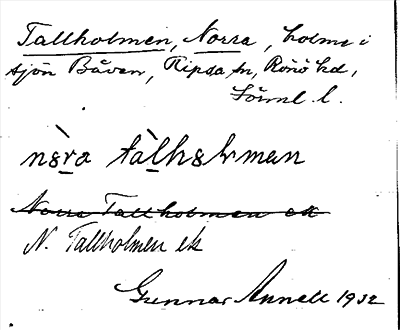 Tallholmen, Norra, holme i
sjön Båven, Ripsa sn, Rönö hd,
Sörml. l.
nòra tàlhɷlman
Norra Tallholmen ek
N. Tallholmen ek
Gunnar Annell 1932